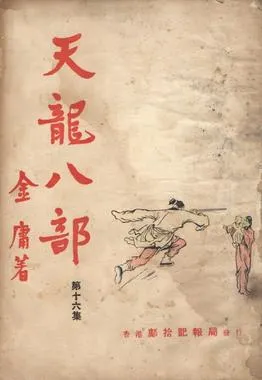 天龍八部
金庸著
第十六集
香港鄺拾記報局發行